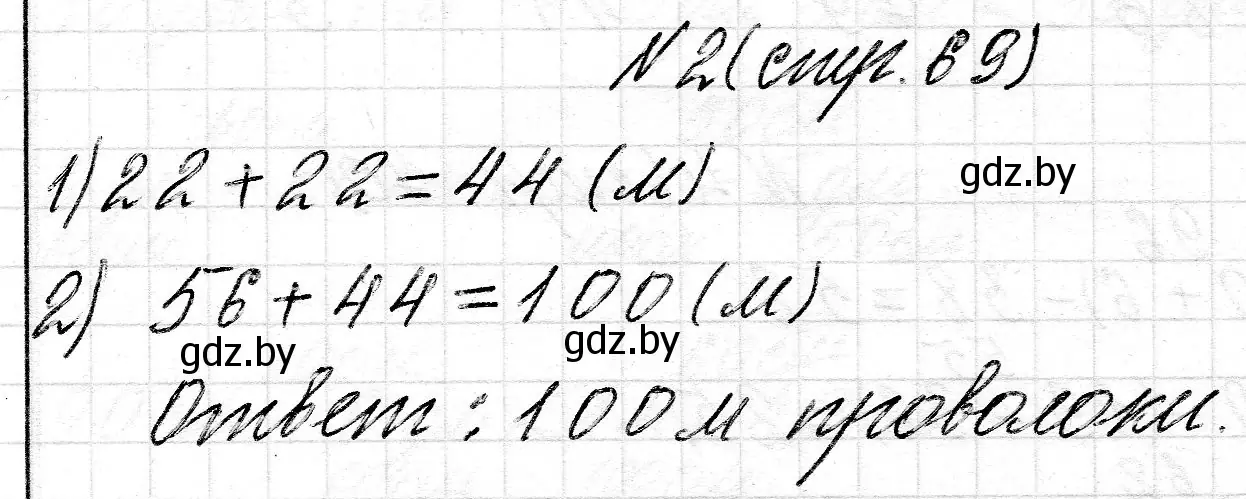 №2(стр.69)
1) 22+22=44 (м)
gdz.by
2) 56+44=100 (м)
gdz.by
gdz.by
Ответ: 100 м проволоки.